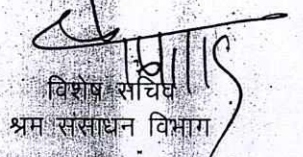 विशेष सचिव
श्रम संसाधन विभाग